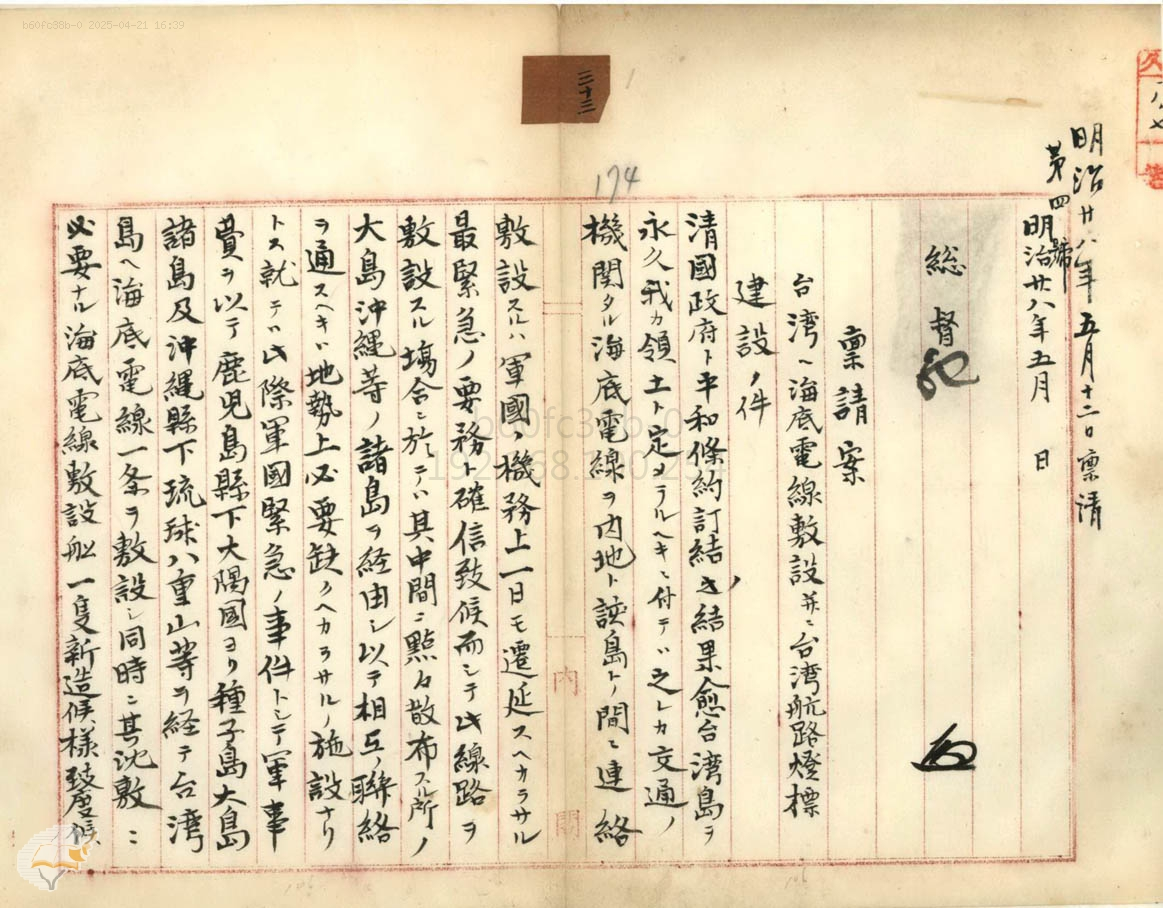 b60fc38b-0 2025-04-21 16:39
三十三
174
明治廿八年五月十二日稟請
第四號
明治廿八年五月　日
総督
稟請案
台湾ヘ海底電線敷設并ニ台湾航路燈標
建設ノ件
清國政府ト平和條約訂結ノ結果愈台湾島ヲ
永久我カ領土ト定メラルヘキニ付テハ之レカ交通ノ
機関タル海底電線ヲ内地ト該島トノ間ニ連絡
敷設スルハ軍國ノ機務上一日モ遷延スヘカラサル
最緊急ノ要務ト確信致候而シテ此線路ヲ
敷設スル場合ニ於テハ其中間ニ點々散布スル所ノ
大島沖縄等ノ諸島ヲ経由シ以テ相互ノ聯絡
ヲ通スヘキハ地勢上必要缺クヘカラサルノ施設ナリ
トス就テハ此際軍國緊急ノ事件トシテ軍事
費ヲ以テ鹿児島縣下大隅國ヨリ種子島大島
諸島及沖縄縣下琉球八重山等ヲ経テ台湾
島ヘ海底電線一条ヲ敷設シ同時ニ其沈敷ニ
必要ナル海底電線敷設船一隻新造候様致度候
内閣
b60fc38b-0